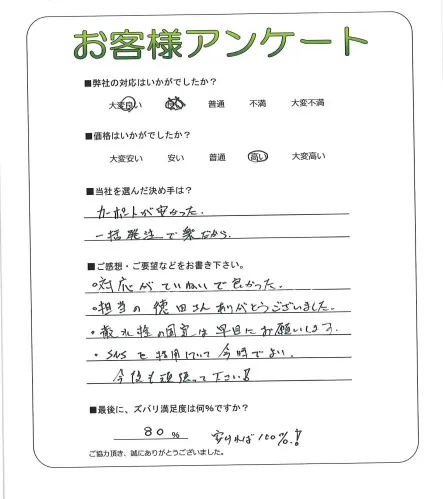 お客様アンケート
■弊社の対応はいかがでしたか?
大変良い 良い 普通 不満 大変不満
■価格はいかがでしたか?
大変安い 安い 普通 高い 大変高い
■当社を選んだ決め手は?
カーポートが安かった.
一括発注で楽だから.
■ご感想・ご要望などをお書き下さい。
・対応がていねいで良かった.
・担当の徳田さんありがとうございました.
・散水栓の固定は早目にお願いします.
・SNSを活用していて今時でよい.
今後も頑張って下さい!!
■最後に、ズバリ満足度は何%ですか?
80% 安ければ100%!!
ご協力頂き、誠にありがとうございました。